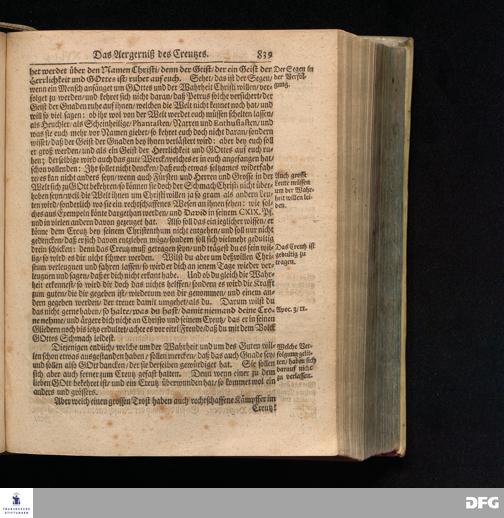 Das Aergerniß des Creutzes. 839
het werdet über den Namen Christi/ denn der Geist/ der ein Geist der
Herrlichkeit und GOttes ist/ ruhet auf euch. Sehet/ das ist der Segen/
wenn ein Mensch anfänget um GOttes und der Wahrheit Christi willen/ ver-
folget zu werden/ und kehret sich nicht daran/ daß Petrus solche versichert/ der
Geist der Gnaden ruhe auf ihnen/ welchen die Welt nicht kennet noch hat/ und
will so viel sagen: ob ihr wol von der Welt werdet euch müssen schelten lassen/
als Heuchler/ als Scheinheilige/ Phantasten/ Narren und Enthusiasten/ und
was sie euch mehr vor Namen gieber/ so kehret euch doch nicht daran/ sondern
wisset/ daß der Geist der Gnaden bey ihnen verlästert wird: aber bey euch soll
er groß werden/ und als ein Geist der Herrlichkeit und GOttes auf euch ru-
hen; derselbige wird auch das gute Werck/ welches er in euch angefangen hat/
schon vollenden: Ihr sollet nicht dencken/ daß euch etwas seltzames widerfah-
re/ es kan nicht anders seyn/ wenn auch Fürsten und Herren und Grosse in der
Welt sich zu GOtt bekehren/ so können sie doch der Schmach Christi nicht über-
hoben seyn/ weil die Welt ihnen um Christi willen ja so gram als andern Leu-
ten wird/ sonderlich wo sie ein rechtschaffenes Wesen an ihnen sehen: wie sol-
ches aus Exempeln könte dargethan werden/ und David in seinem CXIX. Ps.
und in vielen andern davon gezeuget hat. Also soll das ein ieglicher wissen/ er
könne dem Creutz bey seinem Christenthum nicht entgehen/ und soll nur nicht
gedencken/ daß er sich davon entziehen möge/ sondern soll sich vielmehr gedultig
drein schicken: denn das Creutz muß getragen seyn/ und trägest du es fein wil-
lig/ so wird es dir nicht schwer werden. Wilst du aber um deßwillen Chri-
stum verleugnen und fahren lassen/ so wird er dich an jenem Tage wieder ver-
leugnen und sagen/ daß er dich nicht erkant habe. Und ob du gleich die Wahr-
heit erkennest/ so wird dir doch das nichts helffen/ sondern es wird die Krafft
zum guten/ die dir gegeben ist/ wiederum von dir genommen/ und einem an-
dern gegeben werden/ der treuer damit umgehet/ als du. Darum wilst du
das nicht gerne haben/ so halte/ was du hast/ damit niemand deine Cro-
ne nehme/ und ärgere dich nicht an Christo und seinem Creutz/ das er in seinen
Gliedern noch bis ietzo erdultet/ achte es vor eitel Freude/ daß du mit dem Volck
GOttes Schmach leidest.
Diejenigen endlich/ welche um der Wahrheit und um des Guten wil-
len schon etwas ausgestanden haben/ sollen mercken/ daß das auch Gnade sey/
und sollen also GOtt dancken/ der sie derselben gewürdiget hat. Sie sollen
sich aber auch ferner zum Creutz gefaßt halten. Denn wenn einer zu dem
lieben GOtt bekehret ist/ und ein Creutz überwunden hat/ so kommet wol ein
anders und grössers.
Aber welch einen grossen Trost haben auch rechtschaffene Kämpffer im
Creutz!
Der Segen in
der Verfol-
gung.
Auch grosse
Leute müssen
um der Wahr-
heit willen lei-
den.
Das Creutz ist
gedultig zu
tragen.
Apoc. 3/11.
Welche Ver-
folgung gelit-
ten/ haben sich
darauf nicht
zu verlassen.
DFG